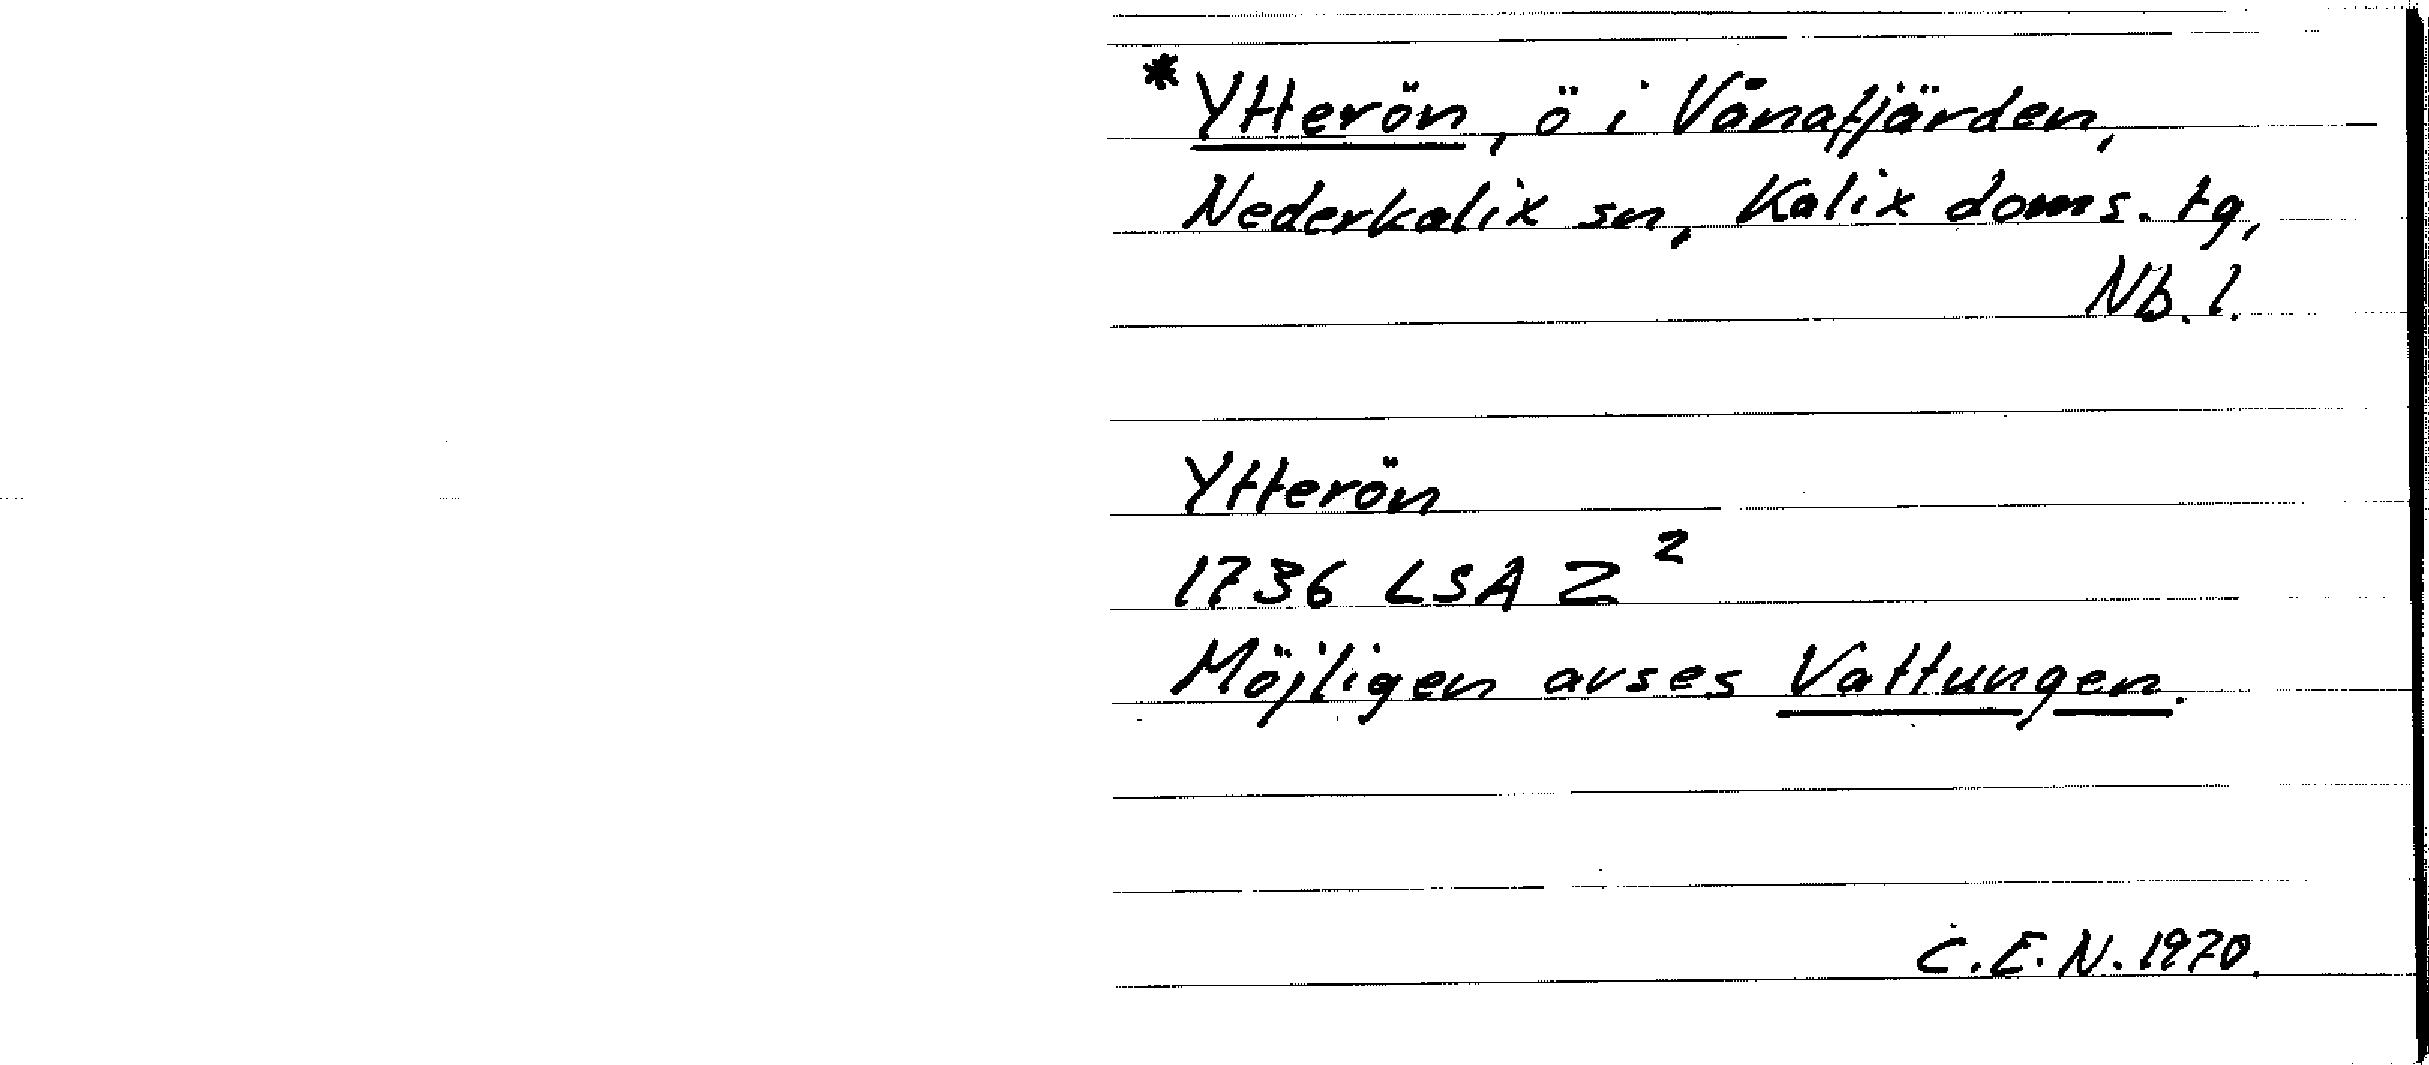 *Ytterön, ö i Vånafjärden,
Nederkalix sn, Kalix doms. tg,
Nb. l.
Ytterön
1736 LSA Z²
Möjligen avses Vattungen.
C.E.N. 1970.